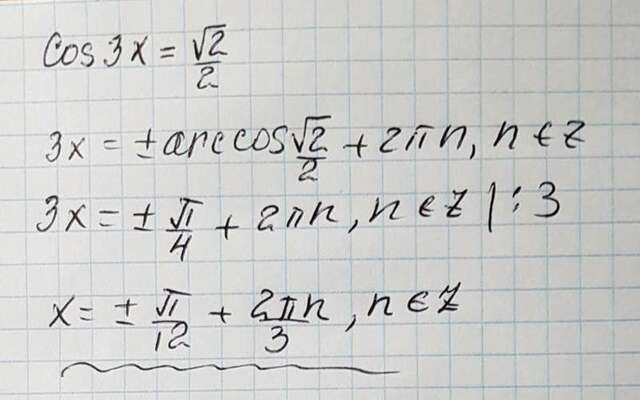 cos 3x = √2/2
3x = ± arccos √2/2 + 2πn, n ∈ Z
3x = ± π/4 + 2πn, n ∈ Z | : 3
x = ± π/12 + 2πn/3, n ∈ Z